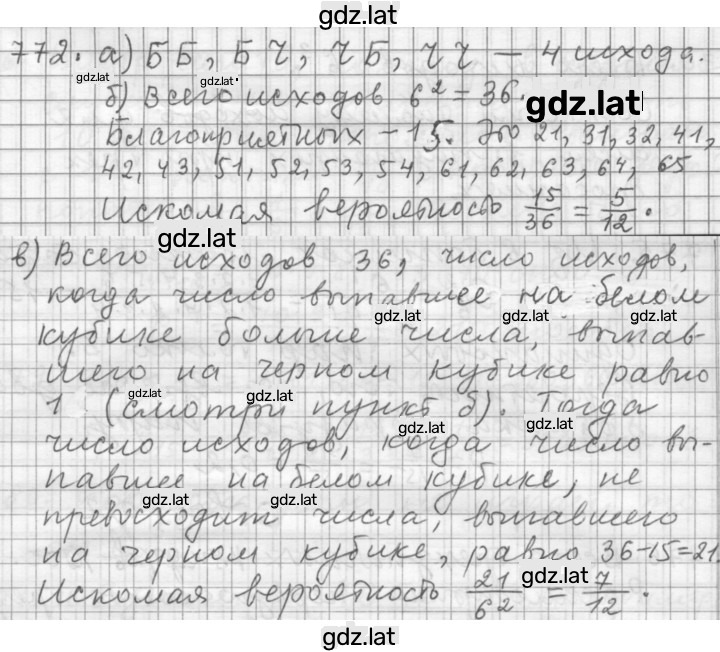 gdz.lat
772. а) ББ, БЧ, ЧБ, ЧЧ – 4 исхода.
gdz.lat gdz.lat
б) Всего исходов 6² = 36.
gdz.lat
Благоприятных – 15. Это 21, 31, 32, 41,
42, 43, 51, 52, 53, 54, 61, 62, 63, 64, 65
Искомая вероятность 15/36 = 5/12.
gdz.lat
в) Всего исходов 36, число исходов,
когда число выпавшее на белом
gdz.lat gdz.lat
кубике больше числа, выпав-
шего на черном кубике равно
gdz.lat
1 (смотри пункт б). Тогда
gdz.lat
число исходов, когда число вы-
павшее на белом кубике, не
gdz.lat gdz.lat
превосходит числа, выпавшего
на черном кубике, равно 36-15=21.
gdz.lat gdz.lat
Искомая вероятность 21/6² = 7/12.
gdz.lat